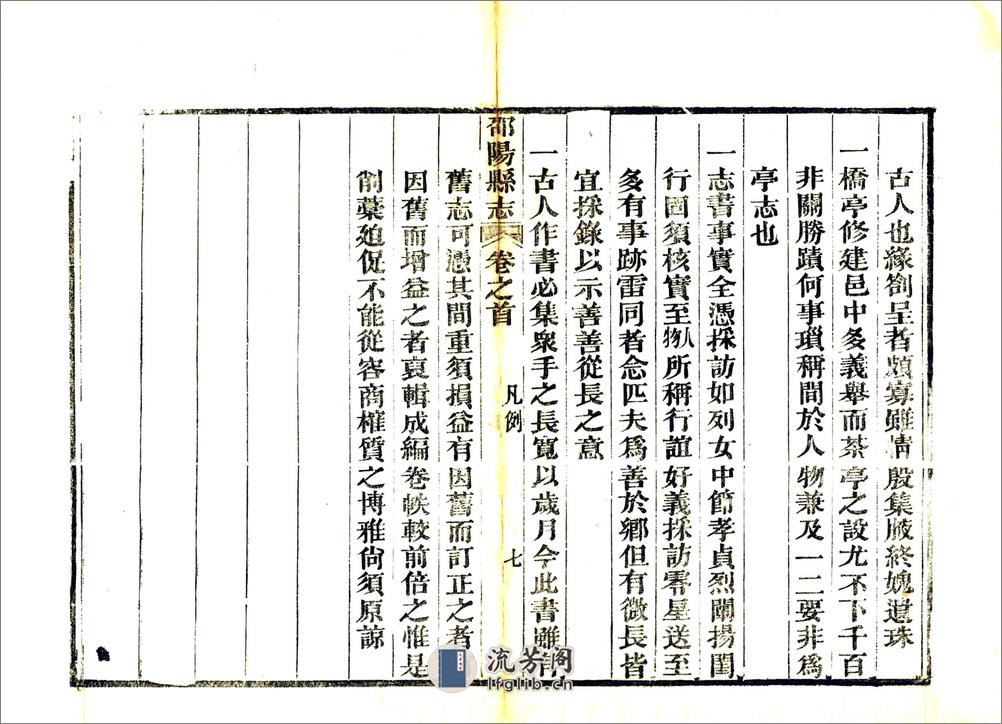 古人也緣劄呈者頗寡雖情殷集腋終媿遺珠
一橋亭修建邑中多義舉而茶亭之設尤不下千百
非關勝蹟何事瑣稱間於人物兼及一二要非爲
亭志也
一志書事實全憑採訪如列女中節孝貞烈闡揚閨
行固須核實至人物所稱行誼好義採訪零星送至
多有事跡雷同者念匹夫爲善於鄉但有微長皆
宜採錄以示善善從長之意
一古人作書必集衆手之長寬以歲月今此書雖有
邵陽縣志 卷之首 凡例 七
舊志可憑其間重須損益有因舊而訂正之者
因舊而增益之者裒輯成編卷帙較前倍之惟是
削藁廹促不能從容商榷質之博雅尙須原諒
流芳阁
lfglib.cn